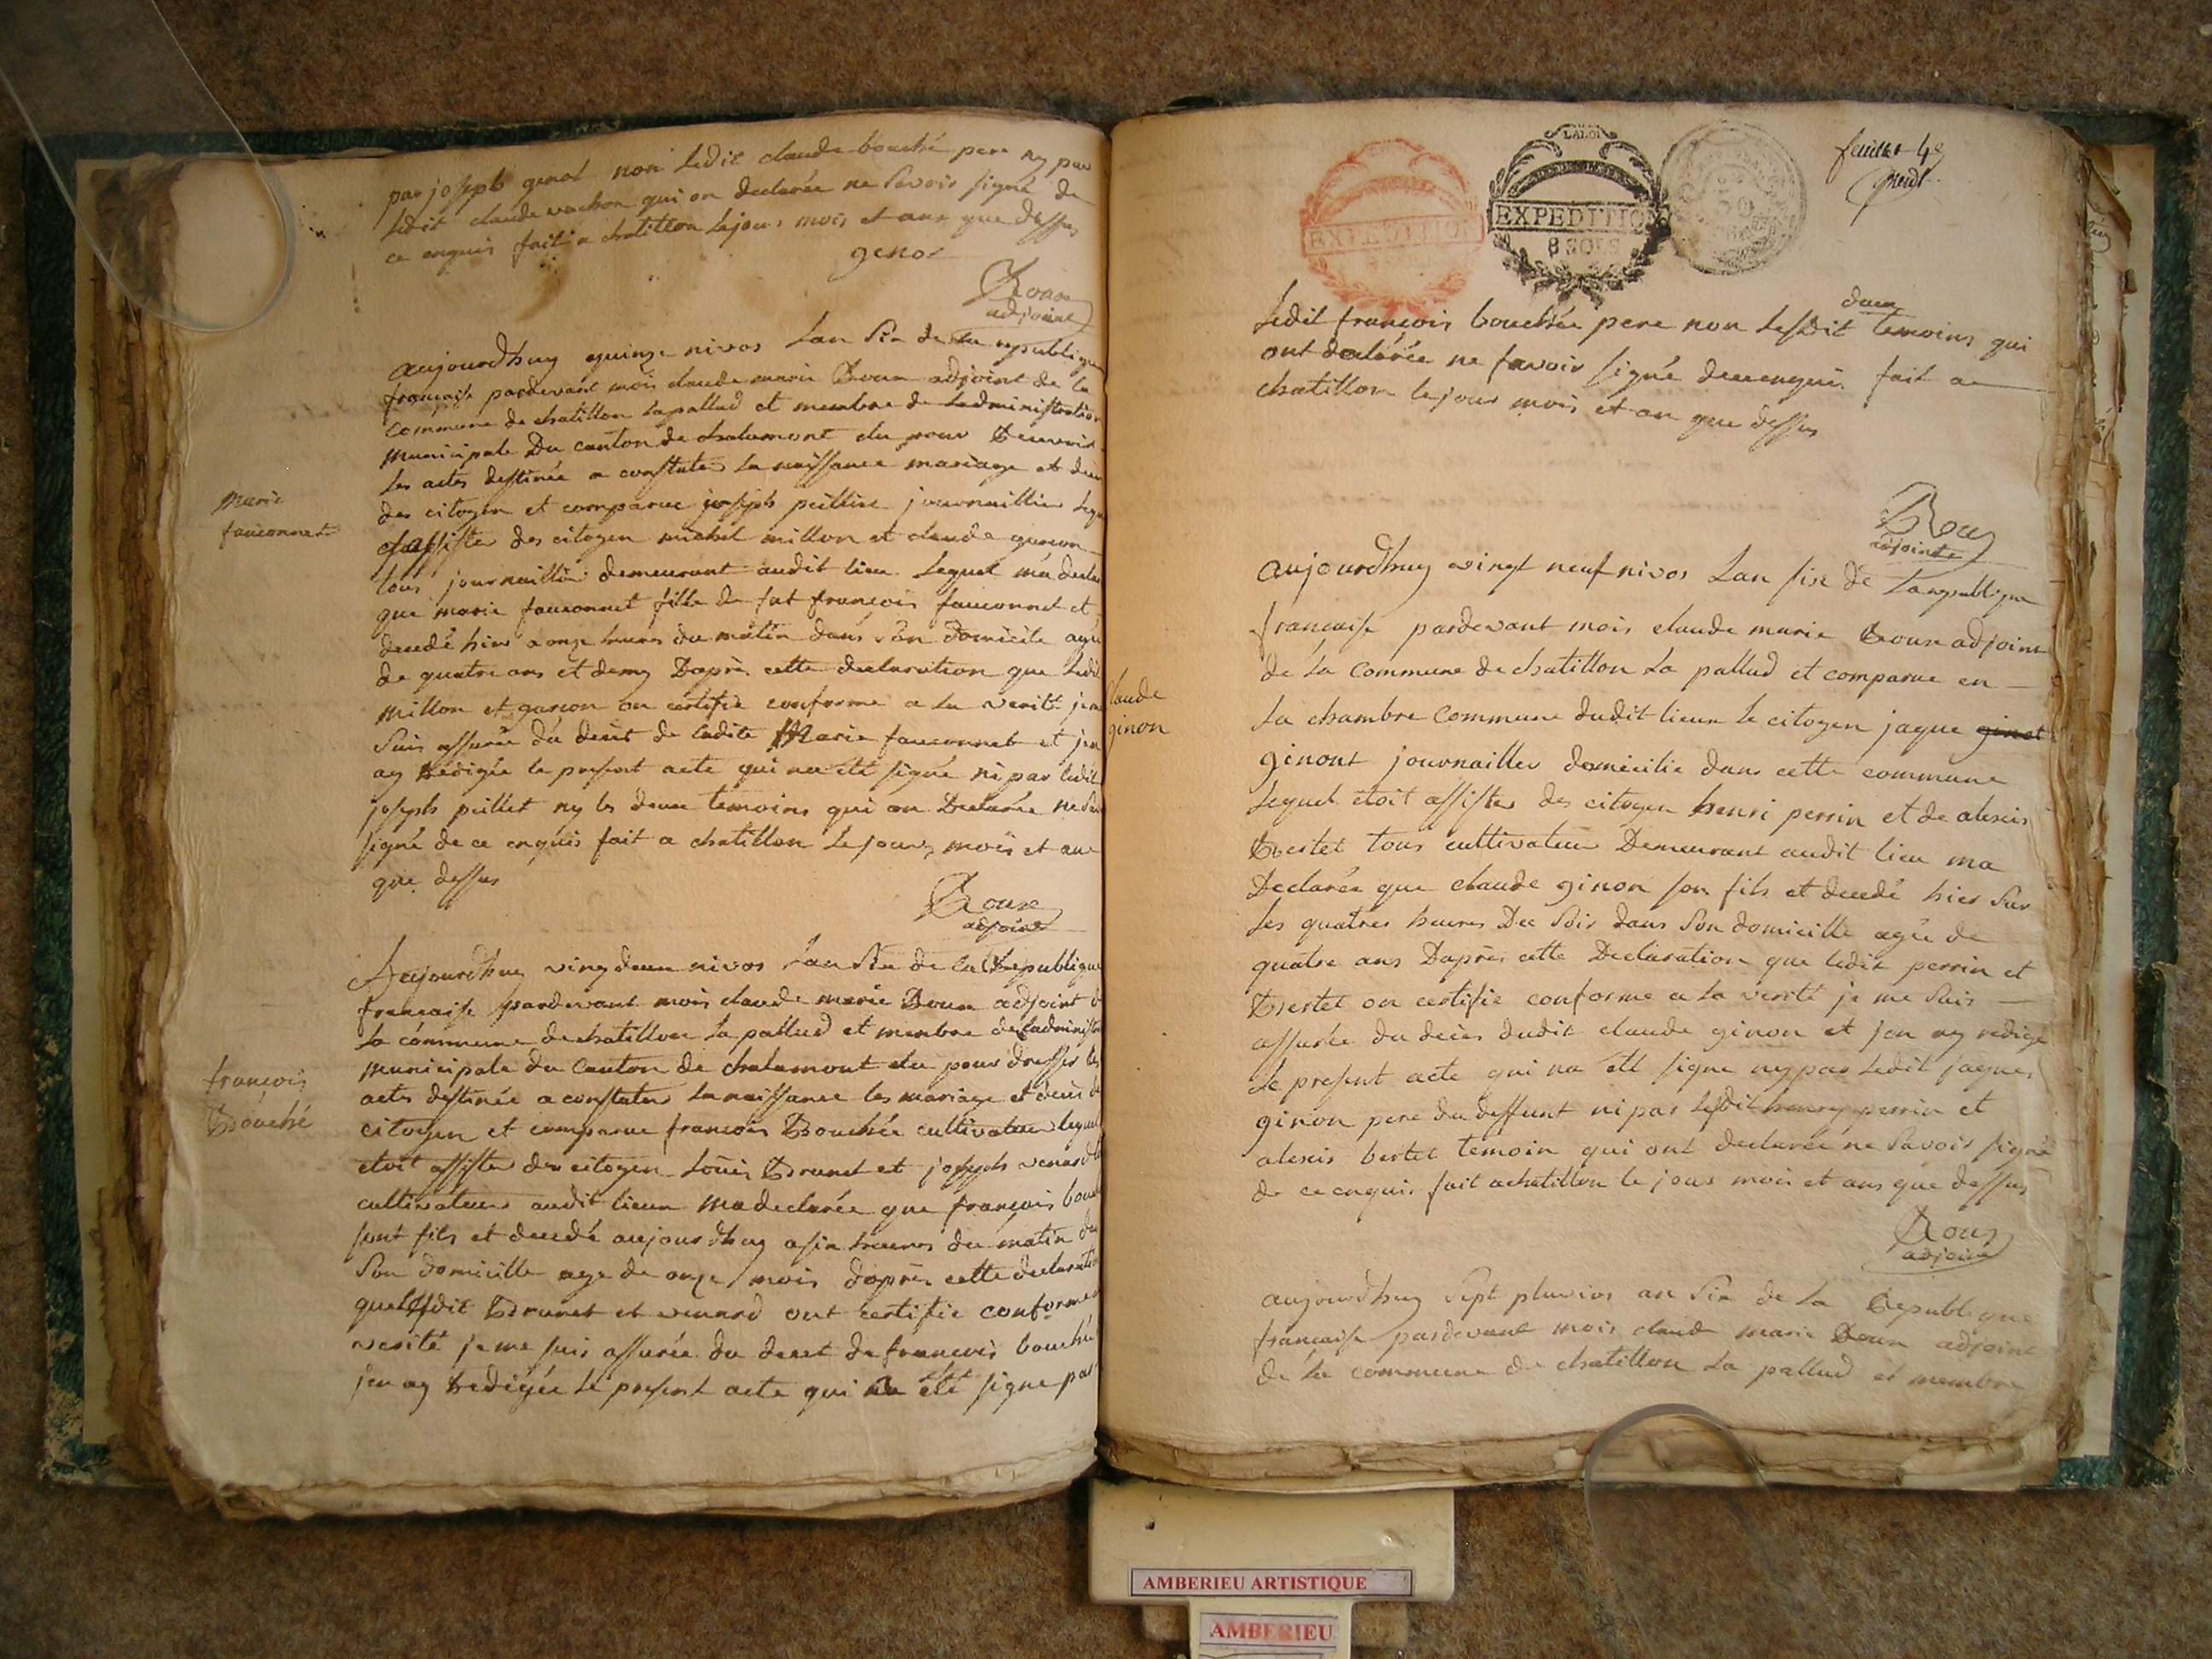 par joseph genot non ledit claude bouché pere ny par
ledit claude vachon qui on declarée ne savoir signé de
ce enquis fait a chatillon lejour mois et ans que dessus
genot
Roux
adjoint
aujourdhuy quinze nivos lan six de la republique
francaise pardevant mois claude marie Roux adjoint de la
commune de chatillon lapallud et membre de ladministration
municipale Du canton de chalamont elu pour
les actes destinée a constater la naissance mariage et
des citoyen et comparue joseph journaillier
assister des citoyen michel millon et claude garcon
tous journaillier demeurant audit lieu lequel ma
que marie fauconnet fille de fut francois fauconnet et
decedé hier a onze heures du matin dans son domicile agée
de quatre ans et demy Daprès cette declaration que
millon et garcon on certifié conforme a la verité je
suis assurée du decès de ladite Marie fauconnet et
ay rédigée le present acte qui na été signé ni par ledit
joseph ny les deux temoins qui on Declarée
signé de ce enquis fait a chatillon le jours mois et ans
que dessus
Roux
adjoint
marie
fauconnet
Aujourdhuy vingdeux nivos lan six de la Republique
francaise pardevant mois claude marie Roux adjoint
la commune dechatillon la pallud et membre de
municipale du canton de chalamont elu pour dresser les
actes destinée a constater la naissance les mariage et decès
citoyen et comparue francois Bouchée cultivateur lequel
etoit assister des citoyen Louis Brunet et joseph
cultivateur audit lieux ma declarée que francois
sont fils et decedé aujourdhuy a six heures du matin
son domicille age de onze mois daprès cette
que lesdit Brunet et venard ont certifié conforme
verité je me suis assurée du decet de francois bouché
jen ay redigée le present acte qui na été signe par
francois
Bouché
LA LOI
EXPEDITION
EXPEDITION
8 SOLS
feuillet
ledit francois bouchée pere non lesdit deux temoins qui
ont declárée ne savoir signé de fait a
chatillon le jour mois et an que dessus
Roux
adjoint
aujourdhuy vingt neuf nivos lan six de la republique
francaise pardevant mois claude marie Roux adjoint
de la commune de chatillon la pallud et comparue en
la chambre commune dudit lieux le citoyen jaque ginet
ginont journailler domicilié dans cette commune
lequel etoit assister des citoyen henri perrin et de alexis
Bertet tous cultivateur Demeurant audit lieu ma
Declarée que claude ginon son fils et decedé hier sur
les quatres heures Du soir dans son domicille agée de
quatre ans Daprès cette Declaration que ledit perrin et
Bertet on certifié conforme a la verité je me suis
assurée du decès dudit claude ginon et jen ay redigé
le present acte qui na été signe ny par ledit jaques
ginon pere du deffunt ni par lesdit henry perrin et
alexis bertet temoin qui ont declarée ne savoir signé
de ce enquis fait a chatillon le jour mois et ans que dessus
Roux
adjoint
claude
ginon
aujourdhuy sept pluvios an six de la Republique
francaise pardevant mois claude marie Roux adjoint
de la commune de chatillon la pallud et membre
AMBERIEU ARTISTIQUE
AMBERIEU